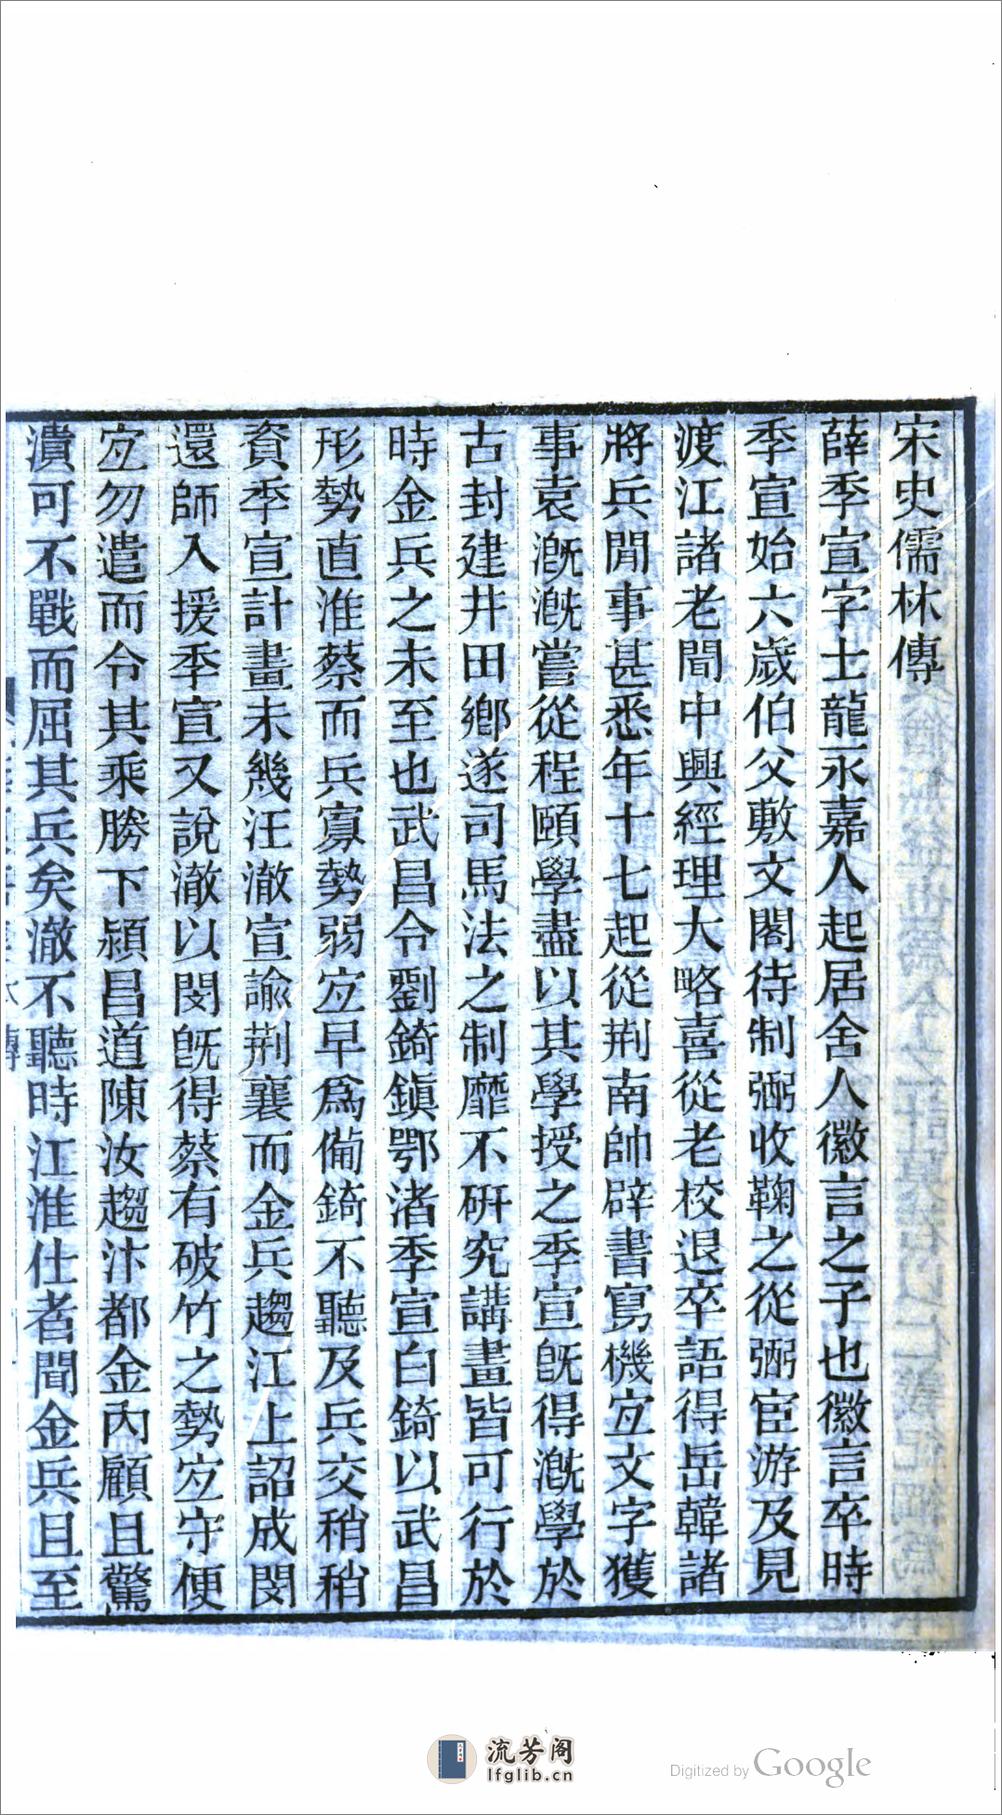 宋史儒林傳
薛季宣字士龍永嘉人起居舍人徽言之子也徽言卒時
季宣始六歲伯父敷文閣待制弼收鞠之從弼宦游及見
渡江諸老聞中興經理大略喜從老校退卒語得岳韓諸
將兵間事甚悉年十七起從荆南帥辟書寫機宜文字獲
事袁漑漑嘗從程頤學盡以其學授之季宣旣得漑學於
古封建井田鄉遂司馬法之制靡不硏究講畫皆可行於
時金兵之未至也武昌令劉錡鎮鄂渚季宣白錡以武昌
形勢直淮蔡而兵寡勢弱宜早爲備錡不聽及兵交稍稍
資季宣計畫未幾汪澈宣諭荆襄而金兵趨江上詔成閔
還師入援季宣又說澈以閔旣得蔡有破竹之勢宜守便
宜勿遣而令其乘勝下潁昌道陳汝趨汴都金內顧且驚
潰可不戰而屈其兵矣澈不聽時江淮仕者聞金兵且至
流芳阁
lfglib.cn
Digitized by Google